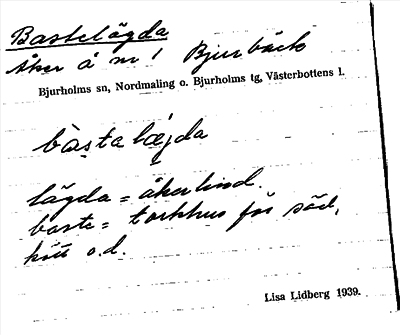 Bastelägda
Åker å nr 1 Bjurbäck
Bjurholms sn, Nordmaling o. Bjurholms tg, Västerbottens l.
bàsta læjda
lägda = åkerlind.
baste = torkhus för säd,
kött o.d.
Lisa Lidberg 1939.